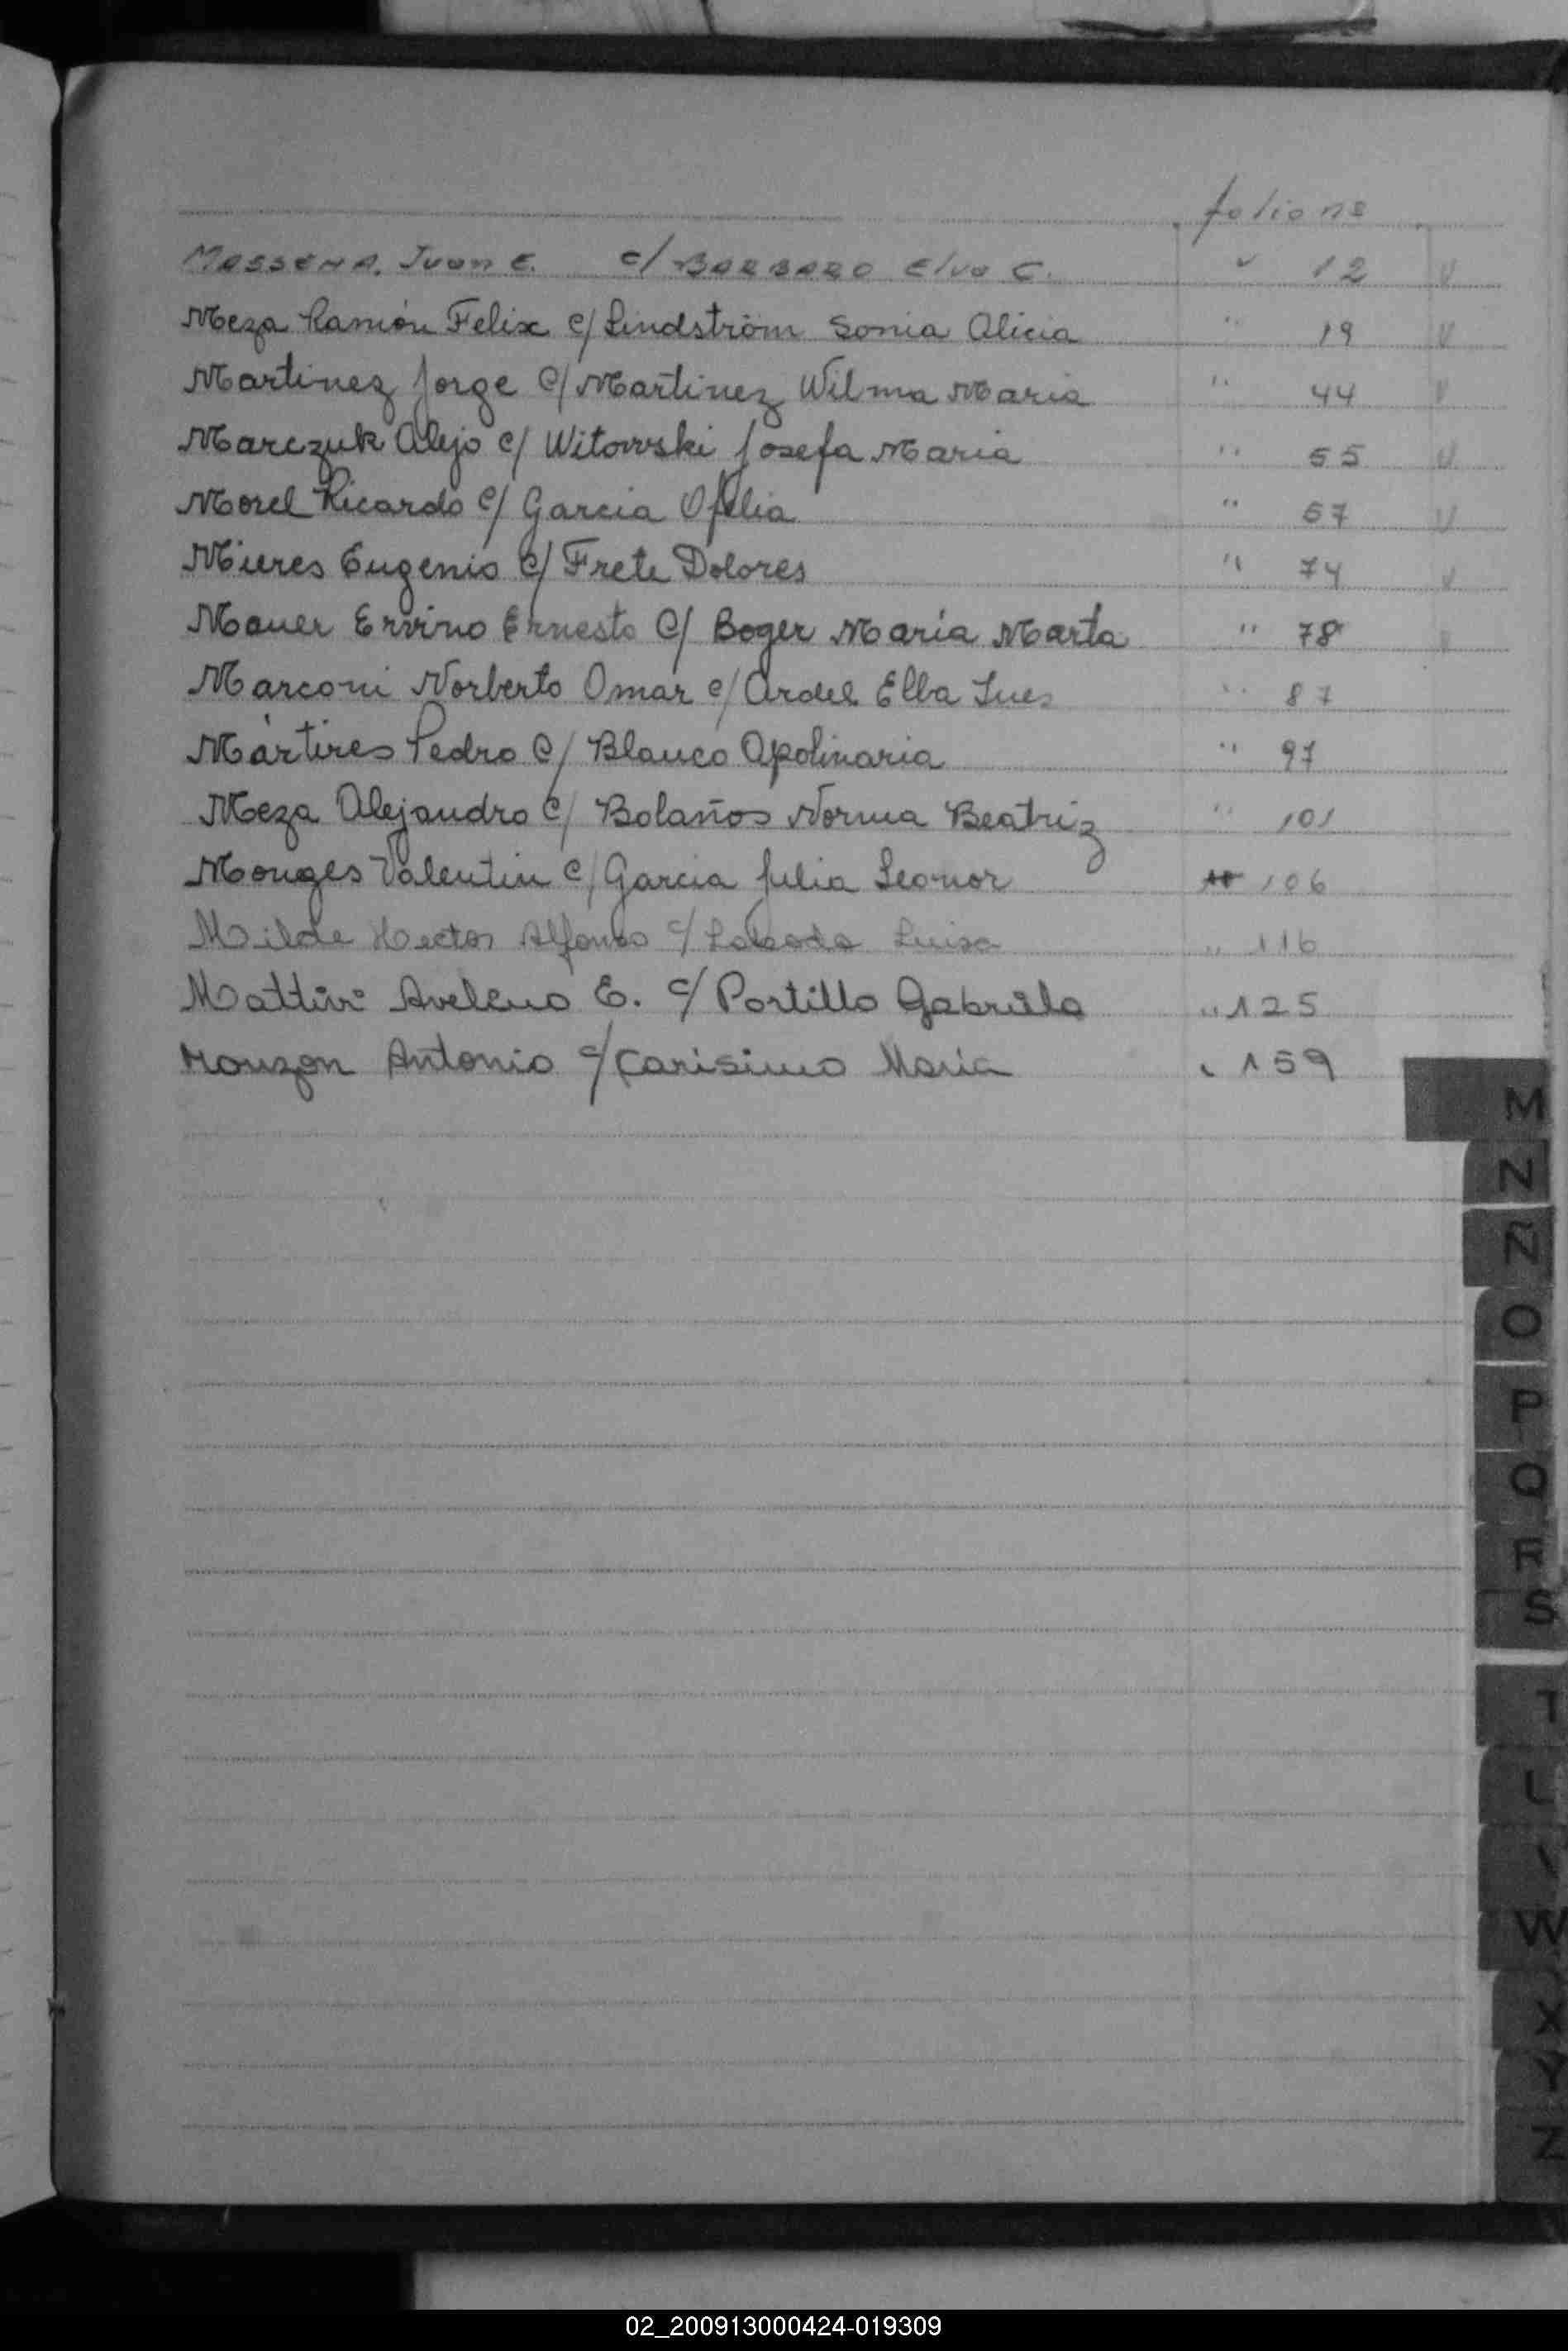 folio nº
MASSENA. Juan E. c/ BARBARO Elva C. " 12 v
Meza Ramón Felix c/ Lindström Sonia Alicia " 19 v
Martinez Jorge c/ Martinez Wilma Maria " 44 v
Marczuk Alejo c/ Witowski Josefa Maria " 55 v
Morel Ricardo c/ Garcia Ofelia " 57 v
Mieres Eugenio c/ Frete Dolores " 74 v
Mauer Ervino Ernesto c/ Boger María Marta " 78 v
Marconi Norberto Omar c/ Ardel Elba Ines " 87
Mártires Pedro c/ Blanco Apolinaria " 97
Meza Alejandro c/ Bolaños Norma Beatriz " 101
Monges Valentin c/ Garcia Julia Leonor 106
Milde Hector Alfonso c/ Luisa " 116
Mattivi Avelino E. c/ Portillo Gabriela " 125
Monzon Antonio c/ Carisimo Maria " 159
M
N
Ñ
O
P
Q
R
S
T
U
V
W
X
Y
Z
02_200913000424-019309